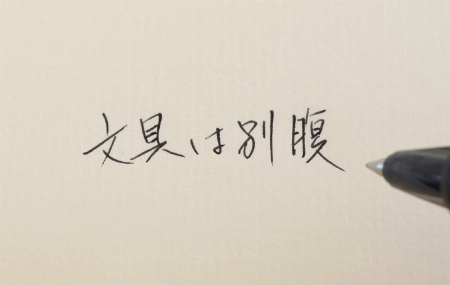 文具は別腹